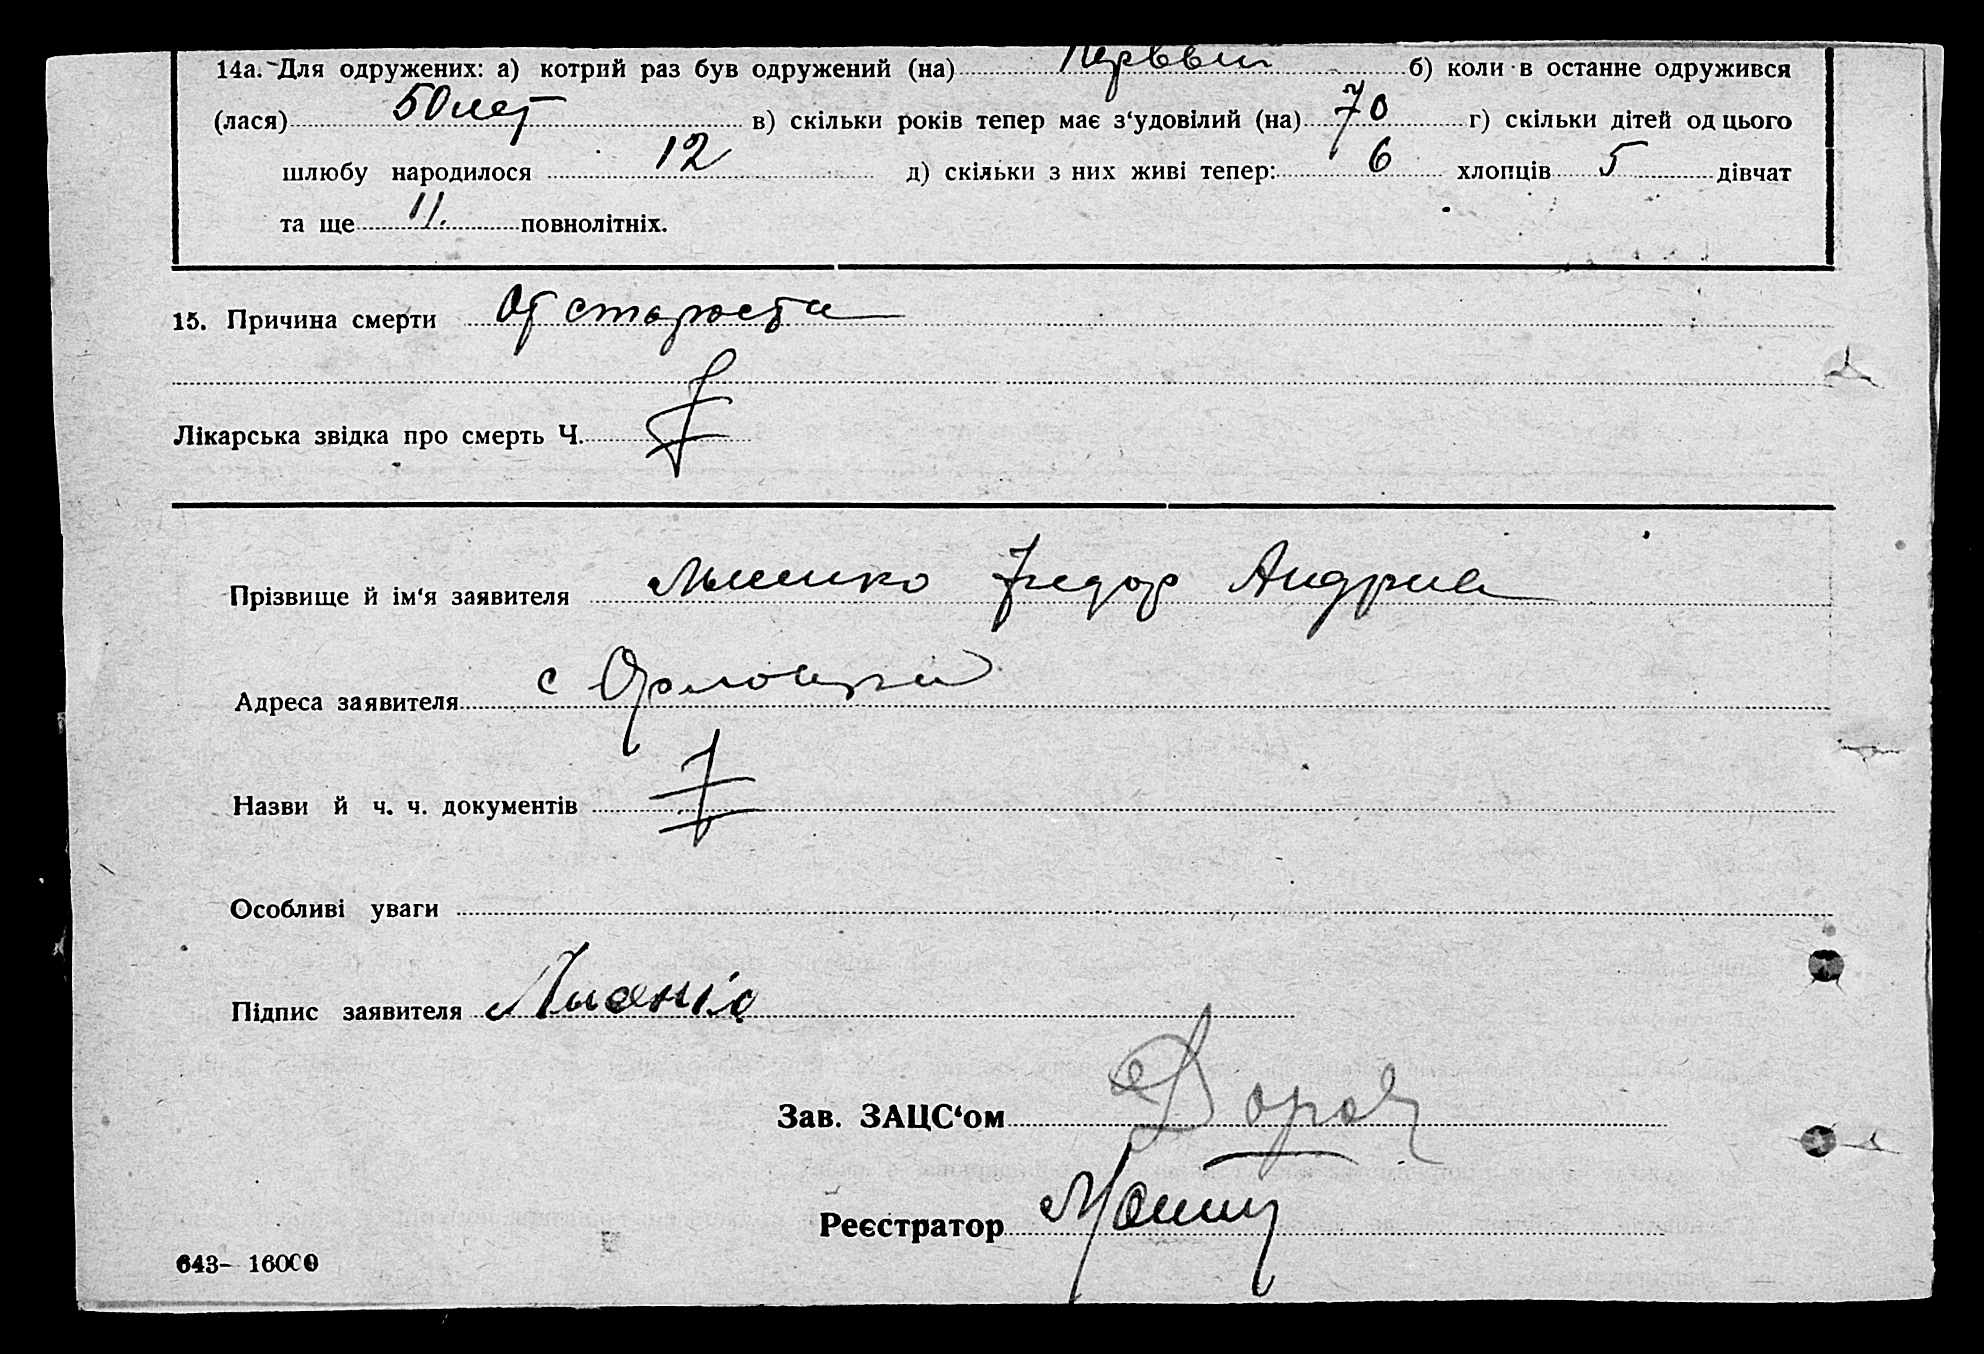 14а. Для одружених: а) котрий раз був одружений (на) Первый б) коли в останне одружився
(лася) 50 лет в) скільки років тепер має з‘удовілий (на) 70 г) скільки дітей од цього
шлюбу народилося 12 д) скільки з них живі тепер: 6 хлопців 5 дівчат
та ще 11. повнолітніх.
15. Причина смерти От старости
Лікарська звідка про смерть Ч.
Прізвище й ім‘я заявителя Федор Андрие
Адреса заявителя с
Назви й ч. ч. документів
Особливі уваги
Підпис заявителя
Зав. ЗАЦС‘ом
Реєстратор
643– 16000